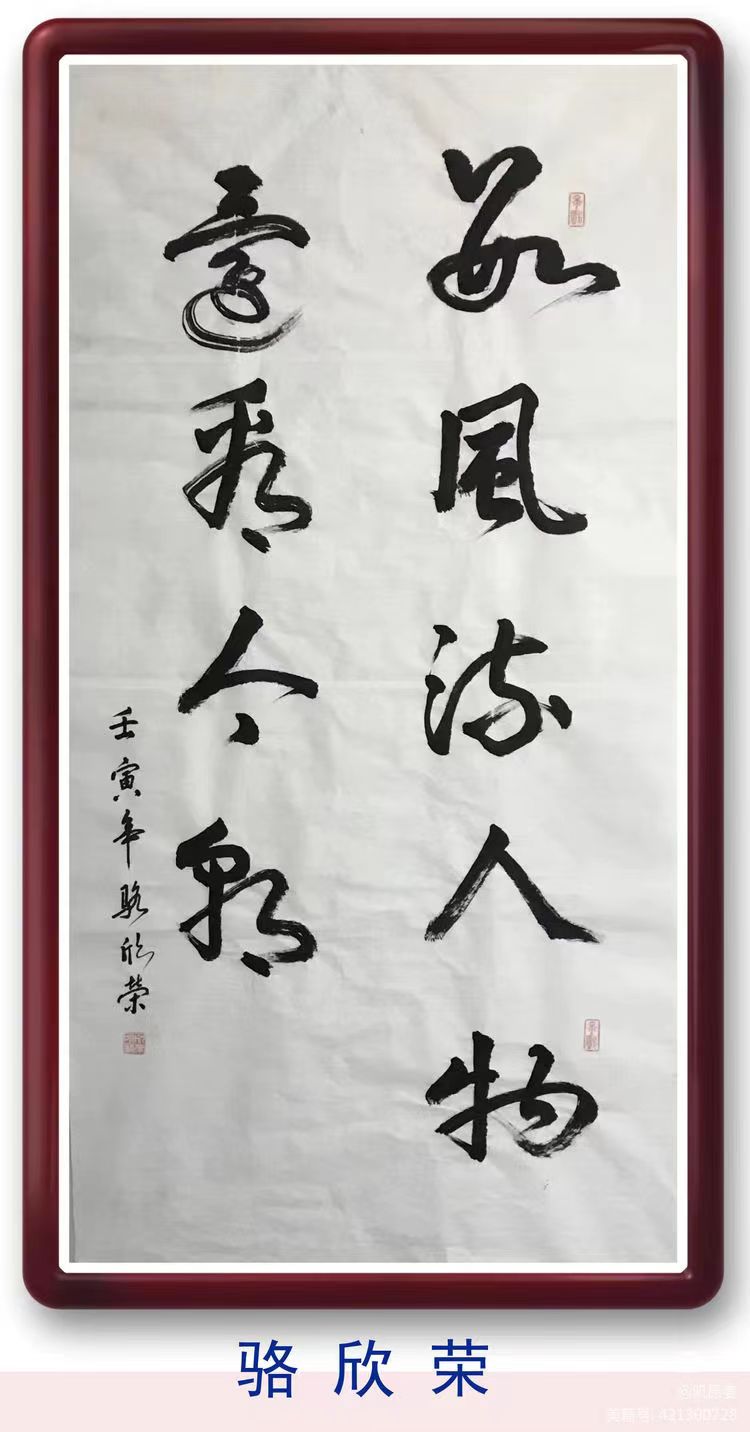 數風流人物
還看今朝
壬寅年駱欣榮
骆欣荣
美篇号: 421300728